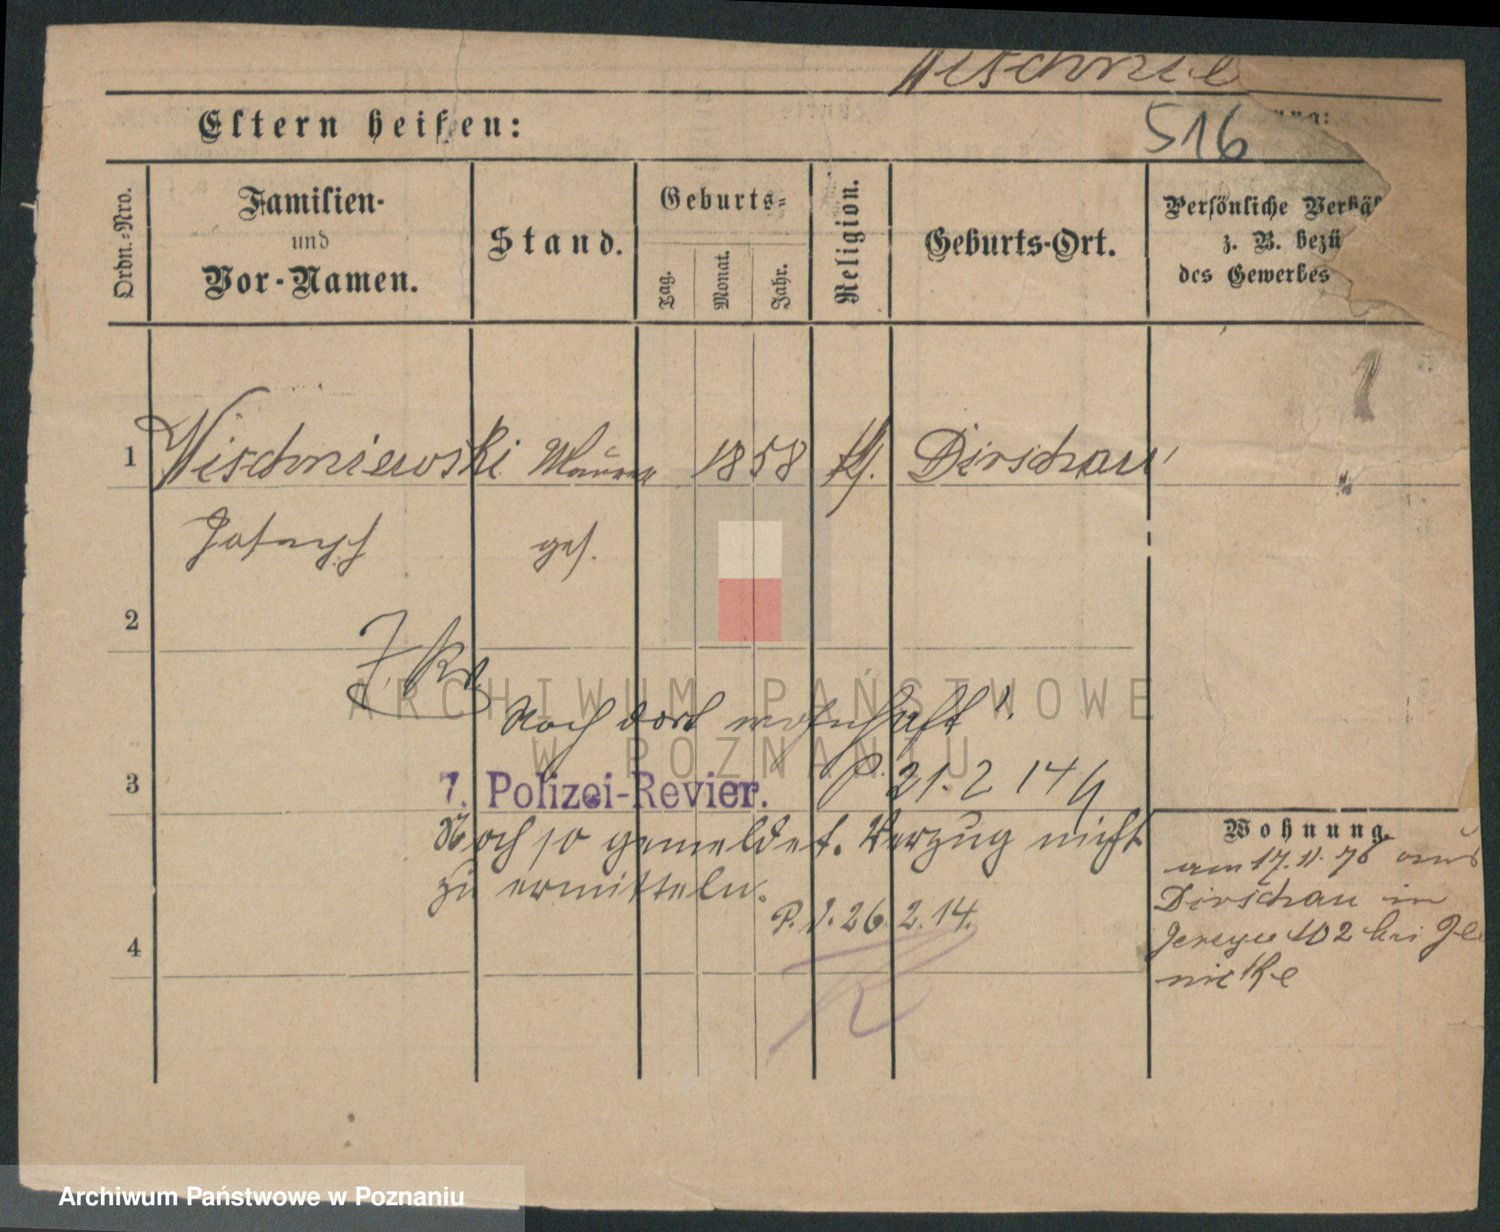 Wischnie
516
Eltern heißen:
Ordn.-Nro.
Familien-
und
Vor-Namen.
Stand.
Geburts-
Tag.
Monat.
Jahr.
Religion.
Geburts-Ort.
Persönliche Verhäl
z. B. bezü
des Gewerbes
1 Wischniewski Maurer 1858 k. Dirschau
Joseph ges.
2
7. Rv.
Noch dort wohnhaft.
P. 21.2 14
3
7. Polizei-Revier.
Noch so gemeldet. Verzug nicht
zu ermitteln.
P. J. 26.2.14.
4
Wohnung.
am 17.11.78 aus
Dirschau in
Jersyce 102 bei Je
nicke
ARCHIWUM PAŃSTWOWE
W POZNANIU
Archiwum Państwowe w Poznaniu